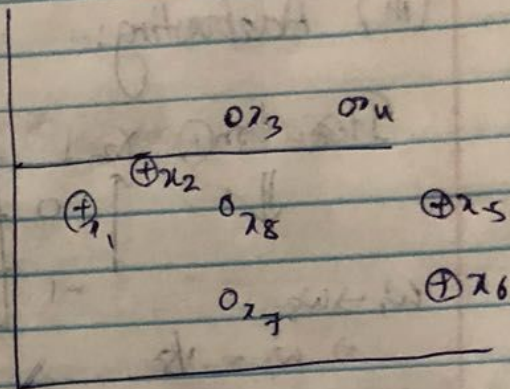 o x3 o x4
⊕ x2
⊕ x1 o x8 ⊕ x5
o x7 ⊕ x6